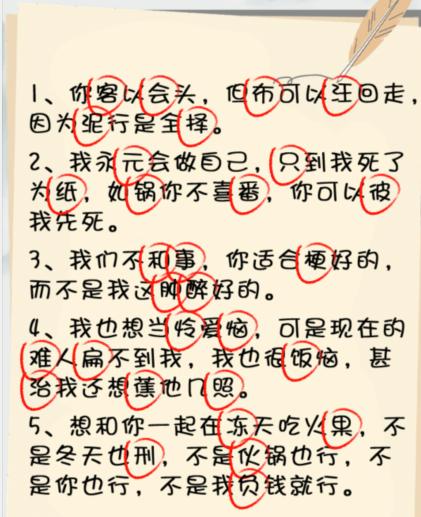 1、你客以会头，但布可以汪回走，
因为鸵行是全择。
2、我永元会做自己，只到我死了
为纸，如锅你不喜番，你可以彼
我先死。
3、我们不和事，你适合梗好的，
而不是我这肿醉好的。
4、我也想当怜爱恼，可是现在的
难人扁不到我，我也很饭恼，甚
治我还想蕉他几照。
5、想和你一起在冻天吃火果，不
是冬天也刑，不是伙锅也行，不
是你也行，不是我负钱就行。